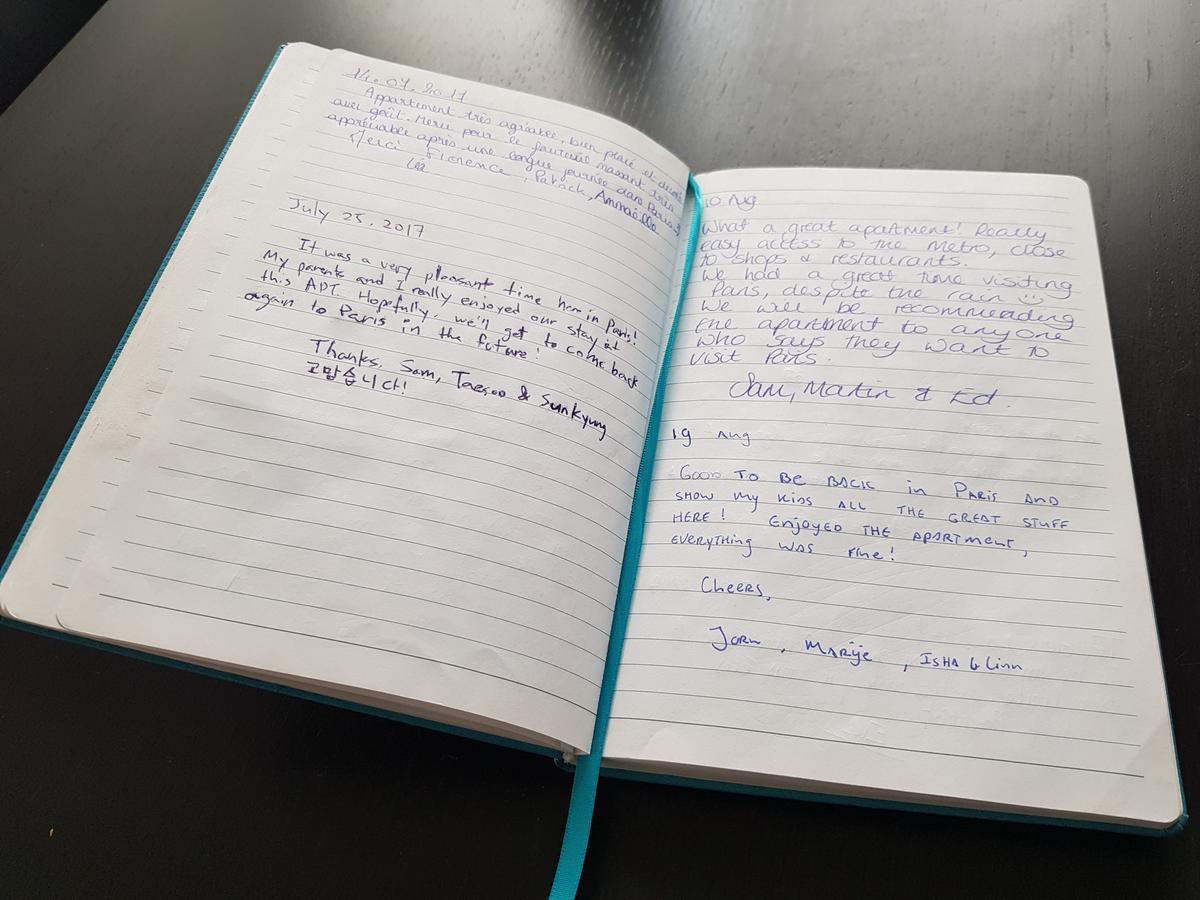 14.07.2017
Appartement très agréable, bien placé et décoré
avec goût. Merci pour le fauteuil massant très
appréciable après une longue journée dans Paris
Merci Florence, Patrick,
Léa
July 25. 2017
It was a very pleasant time here in Paris!
My parents and I really enjoyed our stay at
this APT. Hopefully, we'll get to come back
again to Paris in the future!
Thanks, Sam, Taesoo & Sunkyung
고맙습니다!
10 Aug
What a great apartment! Really
easy access to the Metro, close
to shops & restaurants.
We had a great time visiting
Paris, despite the rain ☺
We will be recommending
the apartment to anyone
who says they want to
visit Paris.
Sam, Martin & Ed.
19 Aug
GOOD TO BE BACK in PARIS AND
SHOW my KIDS ALL THE GREAT STUFF
HERE! Enjoyed THE APARTMENT,
EVERYTHING WAS FINE!
Cheers,
Jorn, Marije, ISHA & Linn